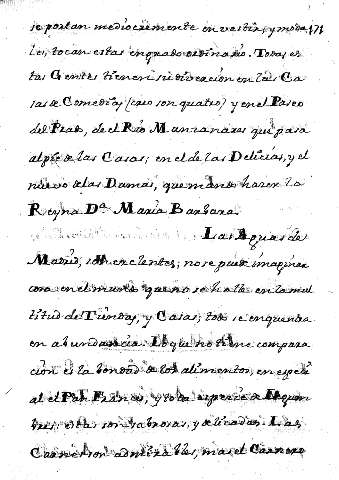 se portan mediocremente en vestir, y moda- 171
les, tocan estas en grado ordinario. Todas es
tas Gentes tienen su diversion en las Ca
sas de Comedias (creo son quatro) y en el Paseo
del Prado, de el Rio Manzanares que pasa
al pie de las Casas; en el de las Delicias, y el
nuevo de las Damas, que mando hacer la
Reyna Dª. Maria Barbara.
Las Aguas de
Madrid, son excelentes; no se puede imaginar
cosa en el mundo que no se halle en la mul
titud de Tiendas, y Casas; todo se enquentra
en abundancia. Lo que no tiene compara
cion es la bondad de los alimentos, en especi
al el Pan Frances, y toda especie de
estas son sabrosas, y delicadas. Las
Carnes son admirables, mas el Carnero